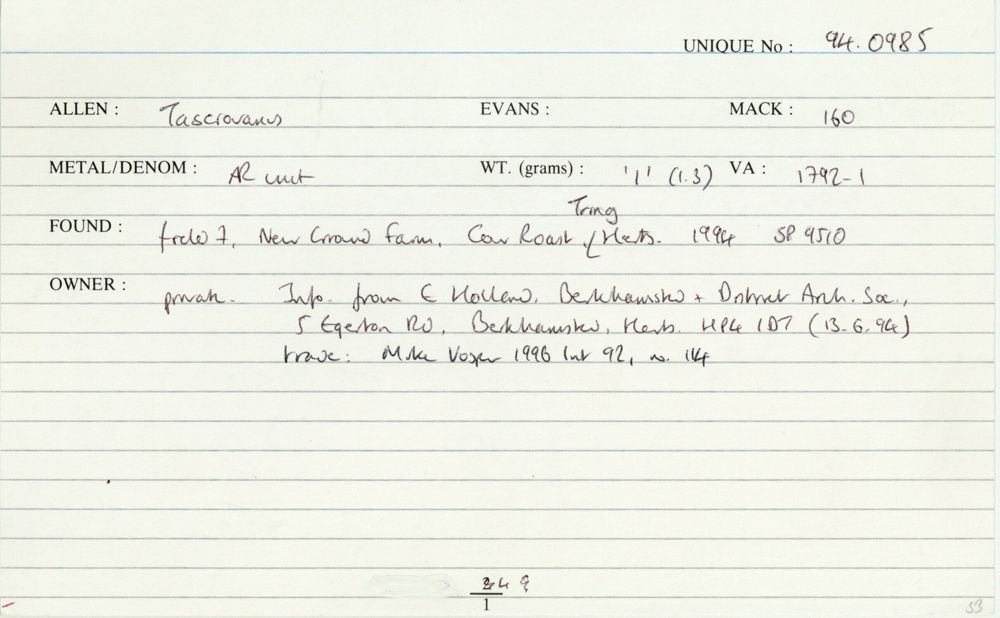 UNIQUE No : 94.0985
ALLEN : Tasciovanus EVANS : MACK : 160
METAL/DENOM : AR unit WT. (grams) : '1' (1.3) VA : 1792-1
Tring
FOUND : field 7, New Ground Farm, Cow Roast, Herts. 1994 SP 9510
OWNER : private. Info. from E Holland, Berkhamsted + District Arch. Soc.,
5 Egerton Rd, Berkhamsted, Herts. HP4 1DT (13.6.94)
trade: Mike Vosper 1996 list 92, no. 14
249
1
53